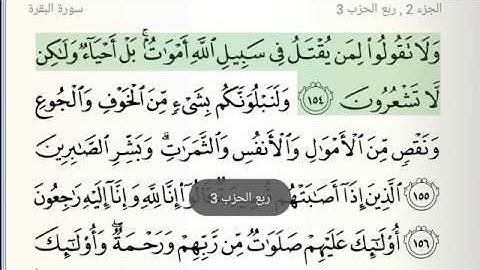 الجزء 2 , ربع الحزب 3 سورة البقرة
وَلَا تَقُولُوا۟ لِمَن يُقْتَلُ فِى سَبِيلِ ٱللَّهِ أَمْوَٰتٌۢ ۚ بَلْ أَحْيَآءٌ وَلَٰكِن
لَّا تَشْعُرُونَ ١٥٤ وَلَنَبْلُوَنَّكُم بِشَىْءٍ مِّنَ ٱلْخَوْفِ وَٱلْجُوعِ
وَنَقْصٍ مِّنَ ٱلْأَمْوَٰلِ وَٱلْأَنفُسِ وَٱلثَّمَرَٰتِ ۗ وَبَشِّرِ ٱلصَّٰبِرِينَ
١٥٥ ٱلَّذِينَ إِذَآ أَصَٰبَتْهُم قَالُوٓا۟ إِنَّا لِلَّهِ وَإِنَّآ إِلَيْهِ رَٰجِعُونَ
ربع الحزب 3
١٥٦ أُو۟لَٰٓئِكَ عَلَيْهِمْ صَلَوَٰتٌ مِّن رَّبِّهِمْ وَرَحْمَةٌ ۖ وَأُو۟لَٰٓئِكَ